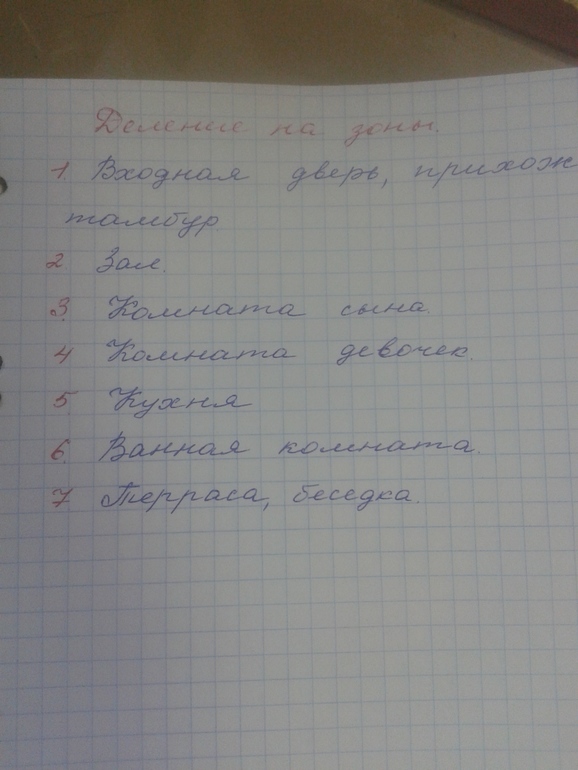 Деление на зоны.
1. Входная дверь, прихож
тамбур
2. Зал.
3. Комната сына.
4 Комната девочек.
5 Кухня
6. Ванная комната.
7 Терраса, беседка.